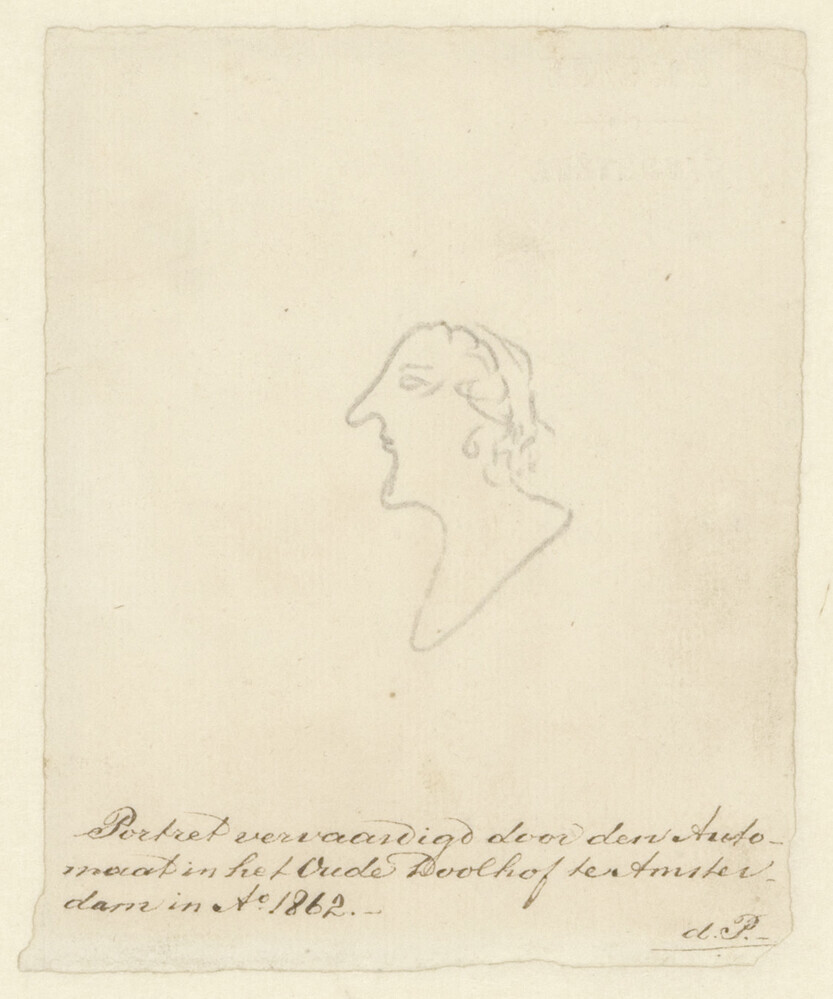 Portret vervaardigd door den Auto-
maat in het Oude Doolhof te Amster-
dam in Ao. 1862.-
d. P.-